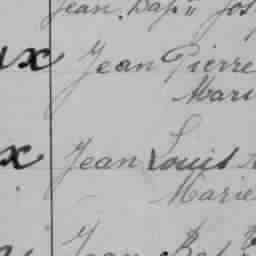 Jean Bap^te Jos
ux Jean Pierre
Mari
x Jean Louis
Marie
Jean Bat